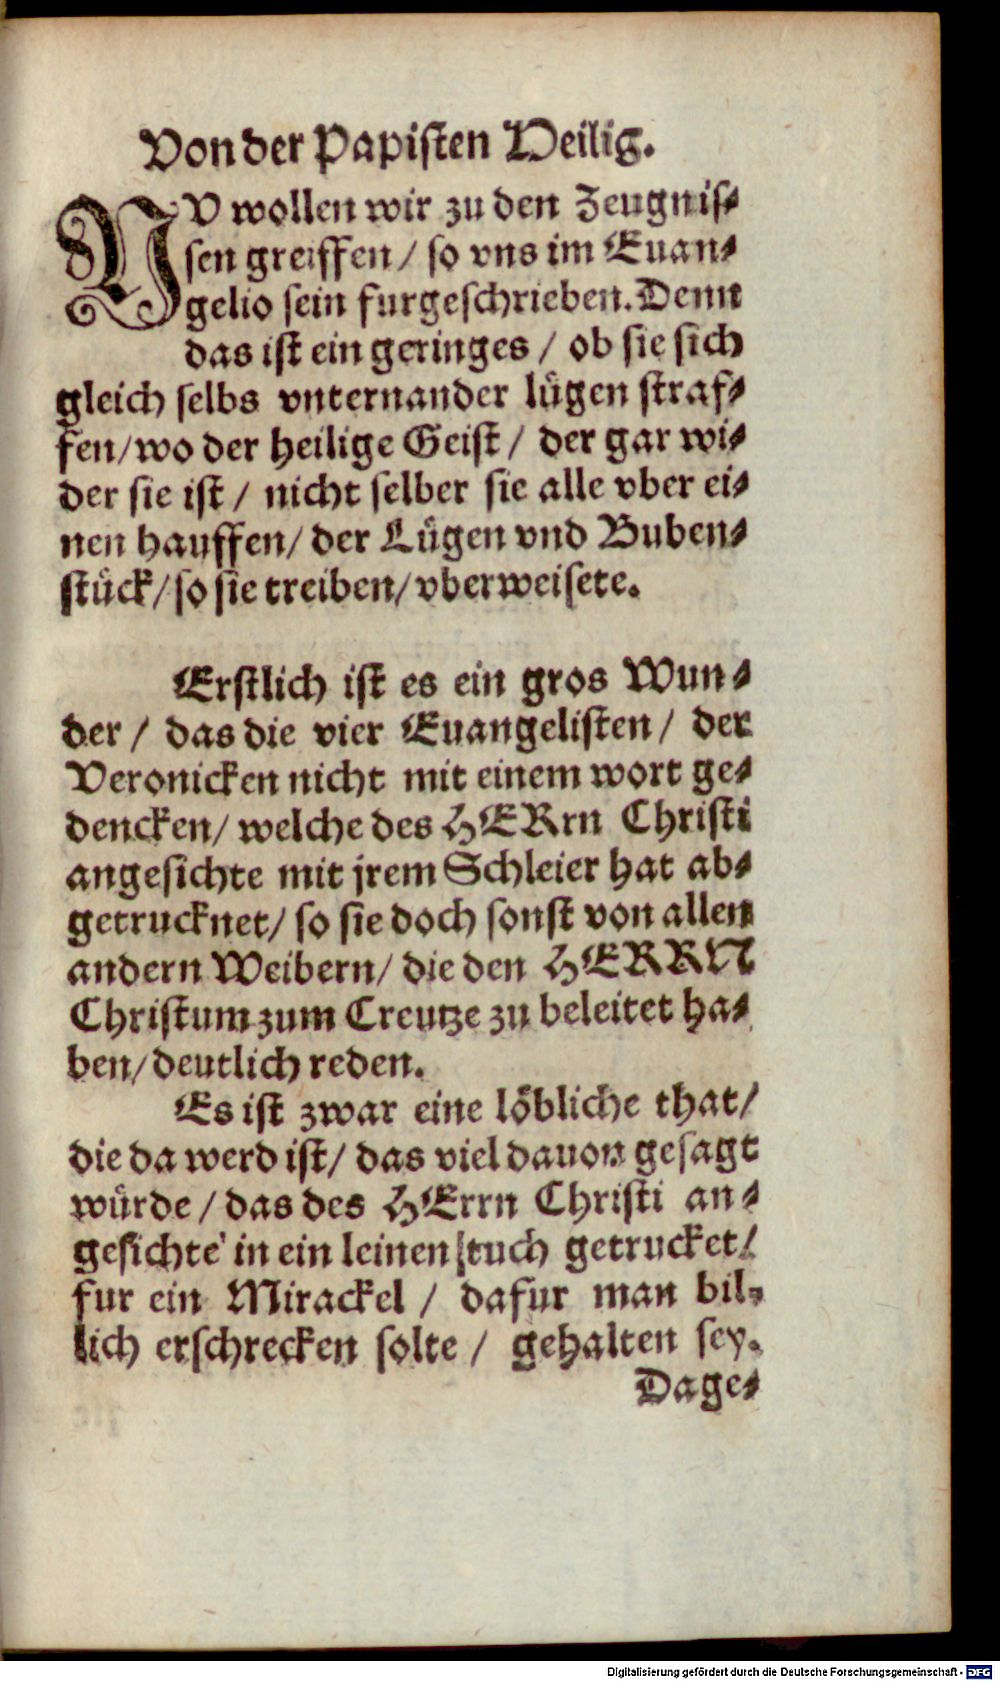 Von der Papisten Heilig.
NV wollen wir zu den Zeugnis⸗
sen greiffen / so vns im Euan⸗
gelio sein furgeschrieben. Denn
das ist ein geringes / ob sie sich
gleich selbs vnternander lügen straf⸗
fen / wo der heilige Geist / der gar wi⸗
der sie ist / nicht selber sie alle vber ei⸗
nen hauffen / der Lügen vnd Buben⸗
stück / so sie treiben / vberweisete.
Erstlich ist es ein gros Wun⸗
der / das die vier Euangelisten / der
Veronicken nicht mit einem wort ge⸗
dencken / welche des HERrn Christi
angesichte mit jrem Schleier hat ab⸗
getrucknet / so sie doch sonst von allen
andern Weibern / die den HERRN
Christum zum Creutze zu beleitet ha⸗
ben / deutlich reden.
Es ist zwar eine löbliche that /
die da werd ist / das viel dauon gesagt
würde / das des HErrn Christi an⸗
gesichte in ein leinen tuch getrucket /
fur ein Mirackel / dafur man bil⸗
lich erschrecken solte / gehalten sey.
Dage⸗
Digitalisierung gefördert durch die Deutsche Forschungsgemeinschaft - DFG